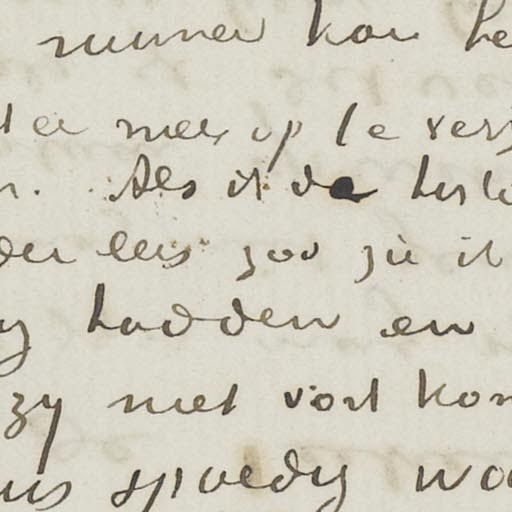 nummer kon he
er mee op te vers
n. Als ik de histo
der lees zoo zie ik
hadden en
zy niet vort kon
us spoedig wa